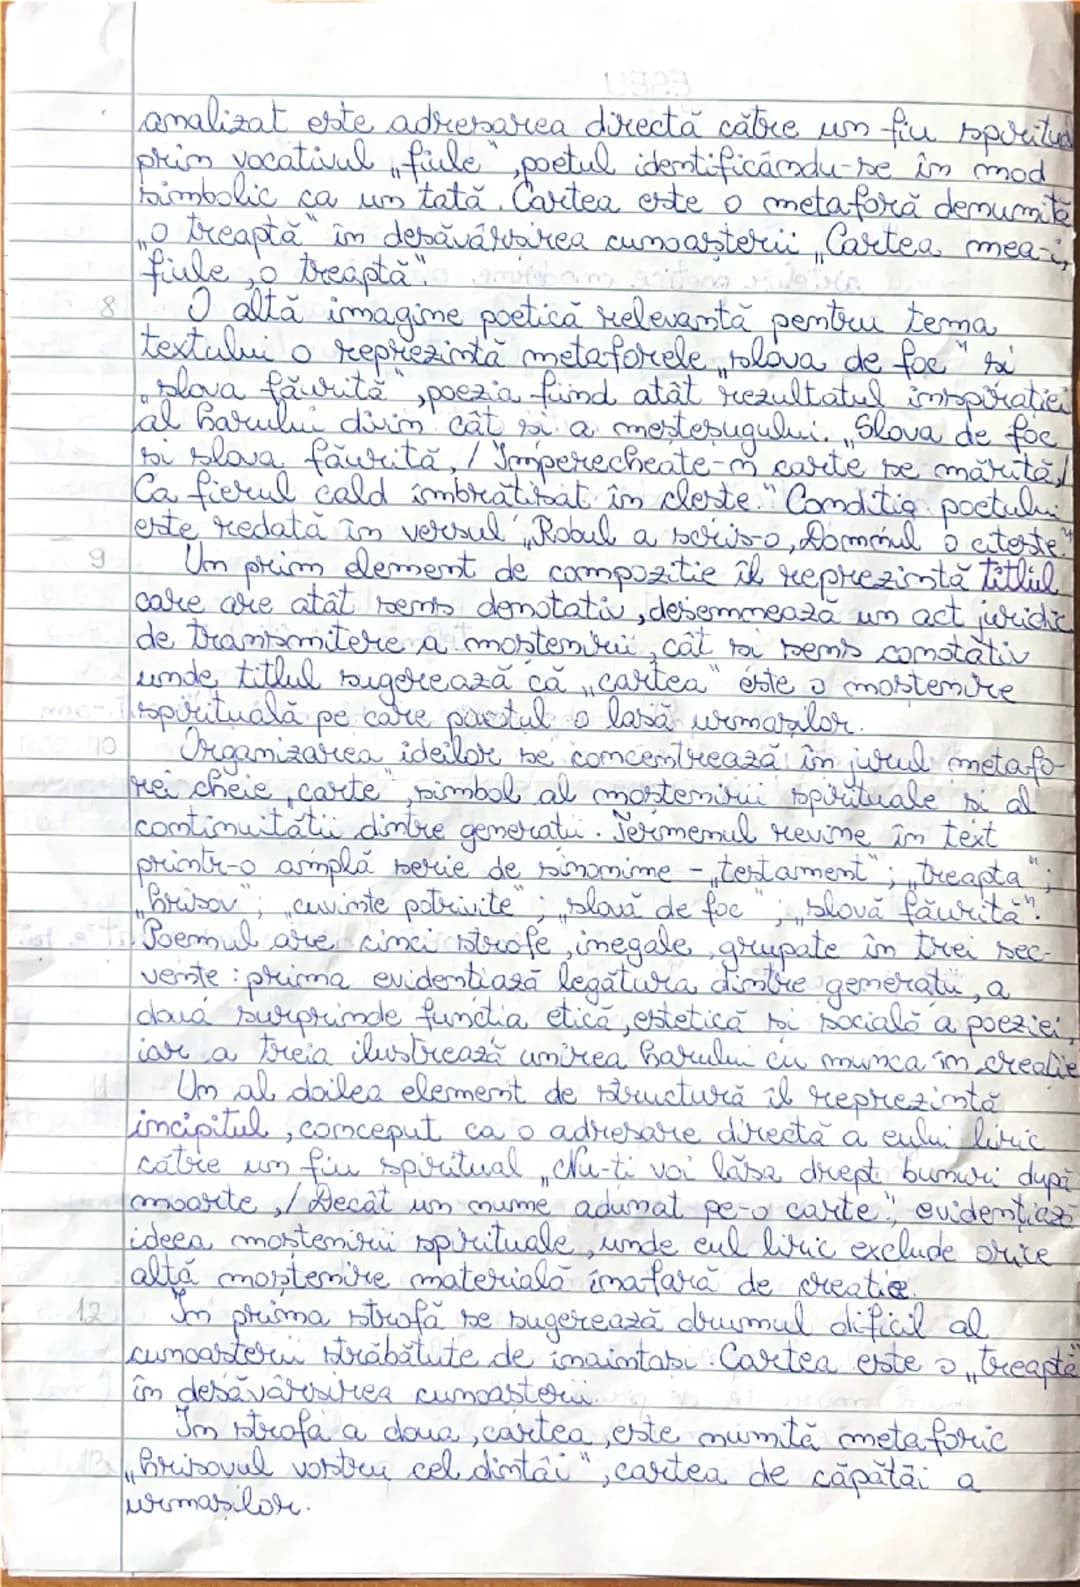 analizat este adresarea directă către un fiu spiritua
prin vocativul „fiule", poetul identificându-se în mod
simbolic ca un tată. Cartea este o metaforă denumită
„o treaptă" în desăvârsirea cunoasterii „Cartea mea-i,
fiule, o treaptă".
8 O altă imagine poetică relevantă pentru tema
textului o reprezintă metaforele „slova de foc" si
„slova făurită", poezia fiind atât rezultatul inspiratiei
al harului divin cât si a mestesugului. „Slova de foc
si slova făurită, / Imperecheate-n carte se mărită,/
Ca fierul cald îmbrătisat în cleste." Conditia poetului
este redată în versul „Robul a scris-o, Domnul o citeste."
9 Un prim element de compozitie îl reprezintă titlul
care are atât sens denotativ, desemnează un act juridic
de transmitere a mostenirii, cât si sens conotativ
unde titlul sugerează că „cartea" este o mostenire
spirituală pe care poetul o lasă urmasilor.
10 Organizarea ideilor se concentrează în jurul metafo-
rei cheie „carte", simbol al mostenirii spirituale si al
continuitătii dintre generatii. Termenul revine în text
printr-o amplă serie de sinonime - „testament"; „treapta";
„hrisov"; „cuvinte potrivite"; „slovă de foc"; „slovă făurită".
Poemul are cinci strofe, inegale, grupate în trei sec-
vente: prima evidentiază legătura dintre generatii, a
două surprinde functia etică, estetică si socială a poeziei,
iar a treia ilustrează unirea harului cu munca în creatie
11 Un al doilea element de structură îl reprezintă
incipitul, conceput ca o adresare directă a eului liric
către un fiu spiritual „Nu-ti voi lăsa drept bunuri după
moarte, / Decât un nume adunat pe-o carte", evidentiază
ideea mostenirii spirituale, unde eul liric exclude orice
altă mostenire materială înafară de creatie.
12 În prima strofă se sugerează drumul dificil al
cunoasterii străbătute de înaintasi. Cartea este o „treaptă"
în desăvârsirea cunoasterii.
În strofa a doua, cartea, este numită metaforic
„hrisovul vostru cel dintâi", cartea de căpătâi a
urmasilor.